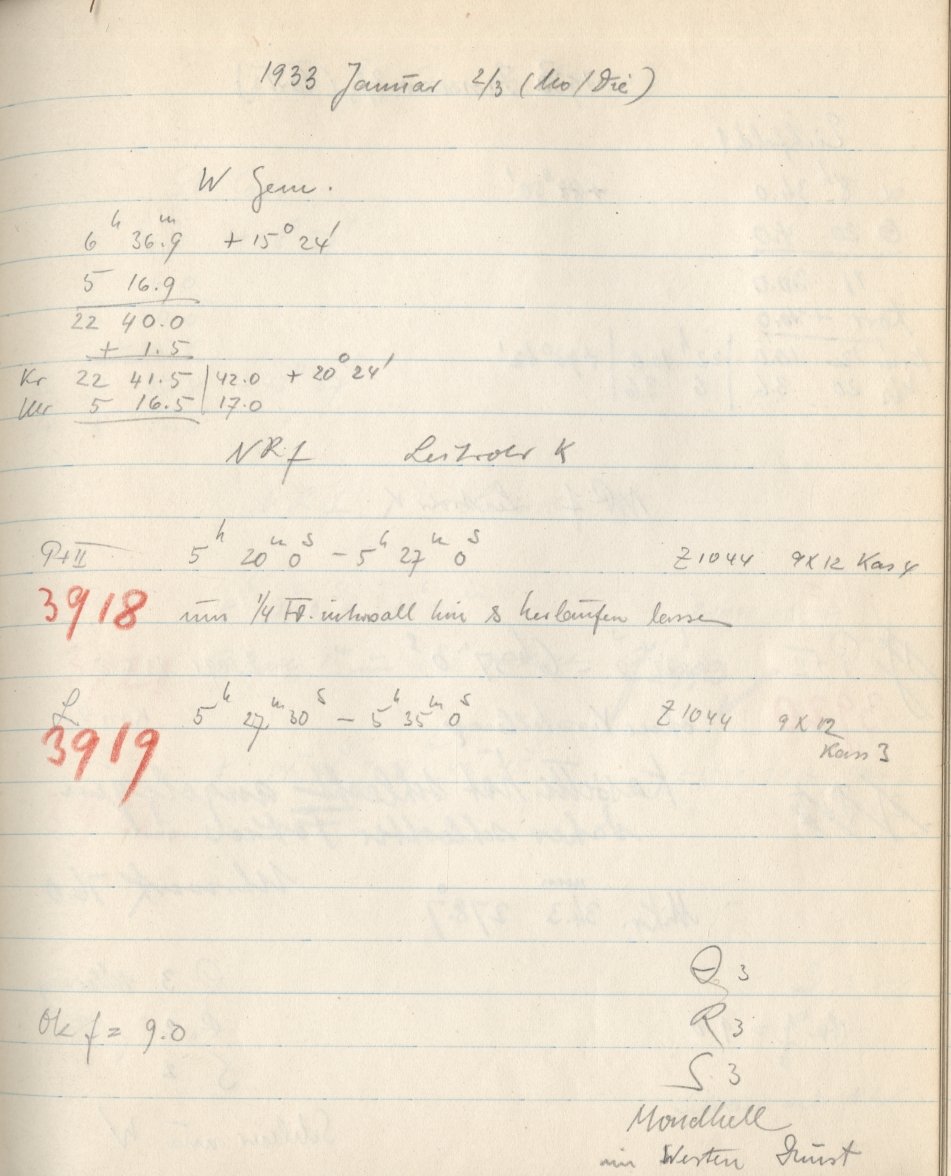 1933 Januar 2/3 (Mo/Die)
W Gem.
6h 36.9m + 15° 24'
5 16.9
22 40.0
+ 1.5
Kr 22 41.5 | 42.0 + 20° 24'
Ur 5 16.5 | 17.0
NRf Leitrohr K
P+II 5h 20m 0s - 5h 27m 0s Z1044 9x12 Kas 4
3918 um 1/4 intervall hin & herlaufen lassen
L 5h 27m 30s - 5h 35m 0s Z1044 9x12
3919 Kass 3
Q 3
Ok f = 9.0 R 3
S 3
Mondhell
im Westen Dunst